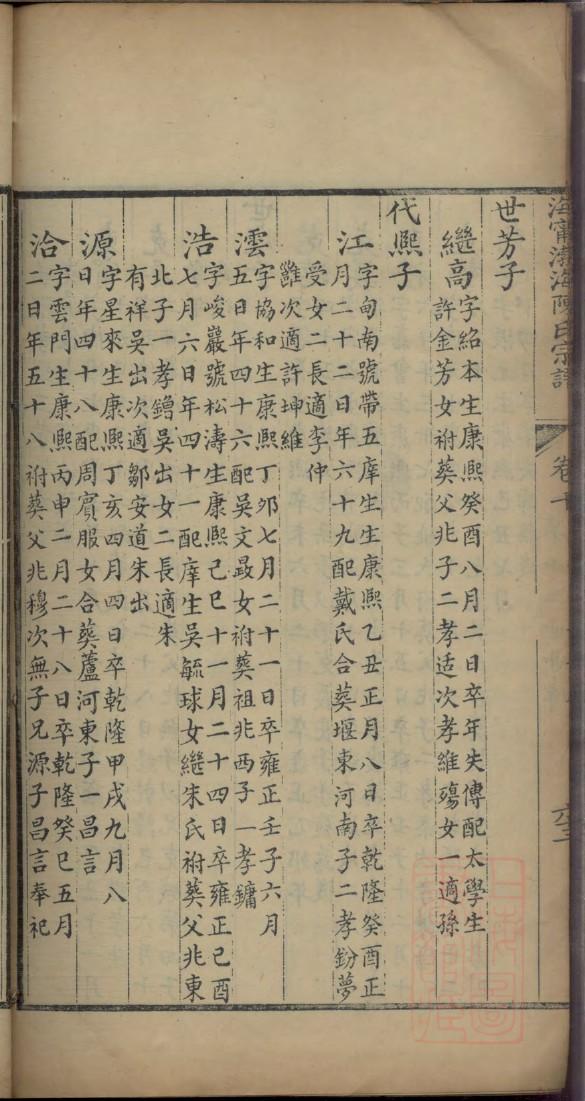 海寧渤海陳氏宗譜
卷十
世芳子
繼高
字紹本生康熙癸酉八月二日卒年失傳配太學生
許金芳女祔葬父兆子二孝适次孝維殤女一適孫
代熙子
江
字甸南號帶五庠生生康熙乙丑正月八日卒乾隆癸酉正
月二十二日年六十九配戴氏合葬堰東河南子二孝鈖夢
受女二長適李仲
雝次適許坤維
澐
字協和生康熙丁卯七月二十一日卒雍正壬子六月
五日年四十六配吳文晸女祔葬祖兆西子一孝鏞
浩
字峻嚴號松濤生康熙己巳十一月二十四日卒雍正己酉
七月六日年四十一配庠生吳毓球女繼朱氏祔葬父兆東
北子一孝鏳吳出女二長適朱
有祥吳出次適鄒安道朱出
源
字星來生康熙丁亥四月四日卒乾隆甲戌九月八
日年四十八配周賓服女合葬蘆河東子一昌言
洽
字雲門生康熙丙申二月二十八日卒乾隆癸巳五月
二日年五十八祔葬父兆穆次無子兄源子昌言奉祀